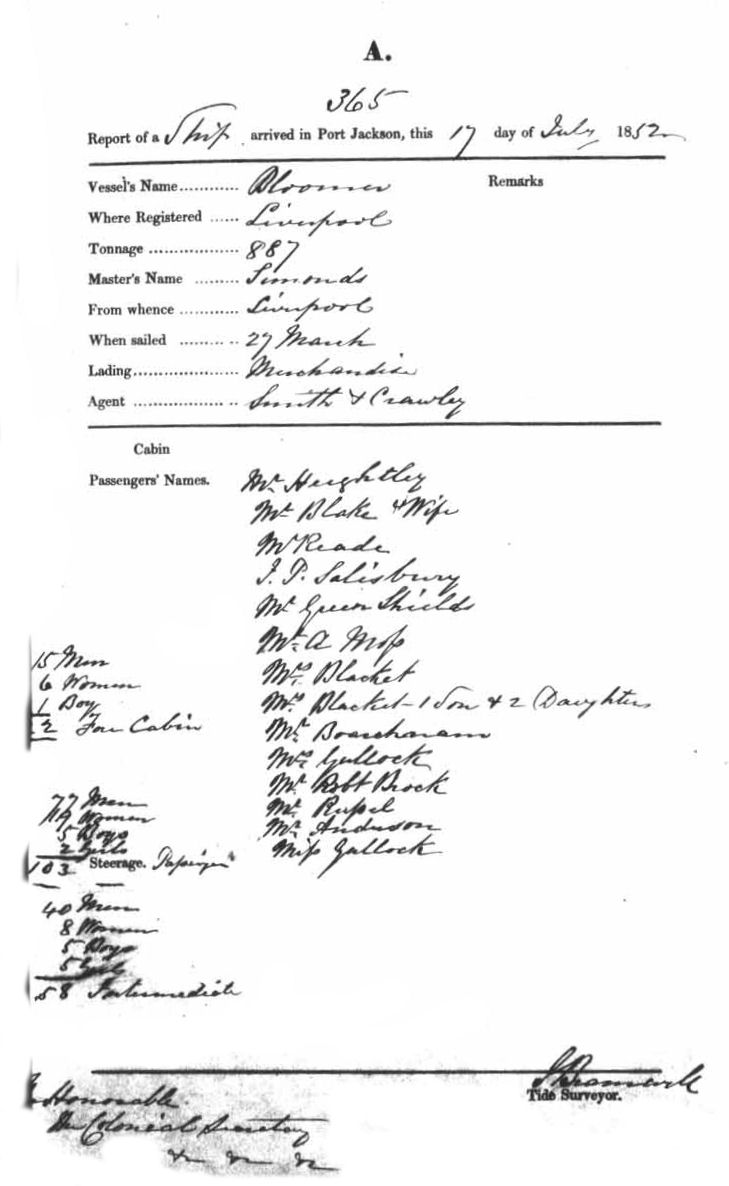 A.
365
Report of a Ship arrived in Port Jackson, this 17 day of July 1852
Vessel's Name............ Bloomer Remarks
Where Registered ...... Liverpool
Tonnage .................. 887
Master's Name ......... Simonds
From whence ............ Liverpool
When sailed ........... 27 March
Lading..................... Merchandise
Agent ..................... Smith & Crawley
Cabin
Passengers' Names. Mr. Heightley
Mr. Blake & Wife
Mr Reade
J. P. Salisbury
Mr. Green Shields
Mr. A Moss
15 Men
Mrs. Blacket
6 Women
Mrs. Blacket - 1 Son & 2 Daughters
1 Boy
2 Fore Cabin
Mr.
Mrs. Gullock
Mr. Robt Brock
77 Men
Mr. Russel
19 Women
Mr. Anderson
5 Boys
2 Girls
Miss Gullock
103 Steerage. Passengers
40 Men
8 Women
5 Boys
5 Girls
58 Intermediate
J Bramwell
Tide Surveyor.
Honorable
The Colonial Secretary
&c &c &c